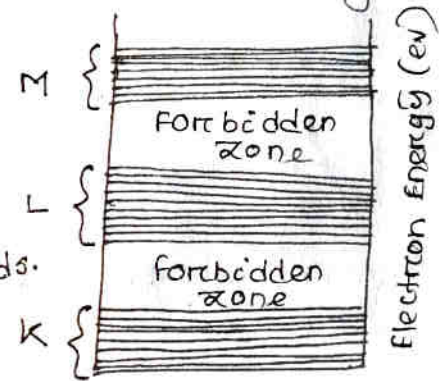 M
Forbidden
zone
L
ds.
forbidden
zone
K
Electron Energy (ev)